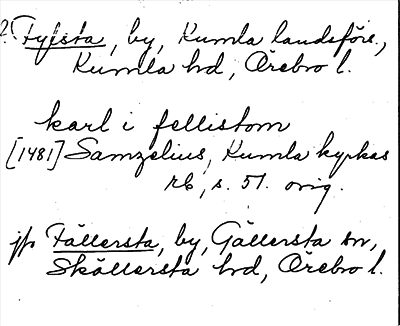 ? Fylsta, by, Kumla landsförs.,
Kumla hd, Örebro l.
karl i fellistom
[1481] Samzelius, Kumla kyrkas
rb, s. 51. orig.
jfr Fällersta, by, Gällersta sn,
Skällersta hd, Örebro l.